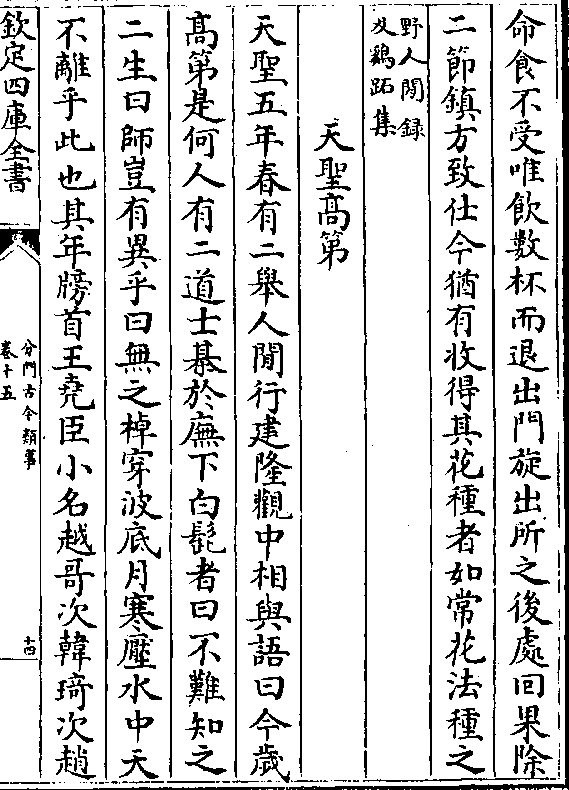 命食不受唯飲數杯而退出門旋出所之後處回果除
二節鎮方致仕今猶有收得其花種者如常花法種之
野人閒録
及鷄跖集
天聖高第
天聖五年春有二舉人閒行建隆觀中相與語曰今歳
髙第是何人有二道士棊於廡下白髭者曰不難知之
二生曰師豈有異乎曰無之棹穿波底月寒壓水中天
不離乎此也其年牓首王堯臣小名越哥次韓琦次趙
欽定四庫全書
分門古今類事
卷十五
十四